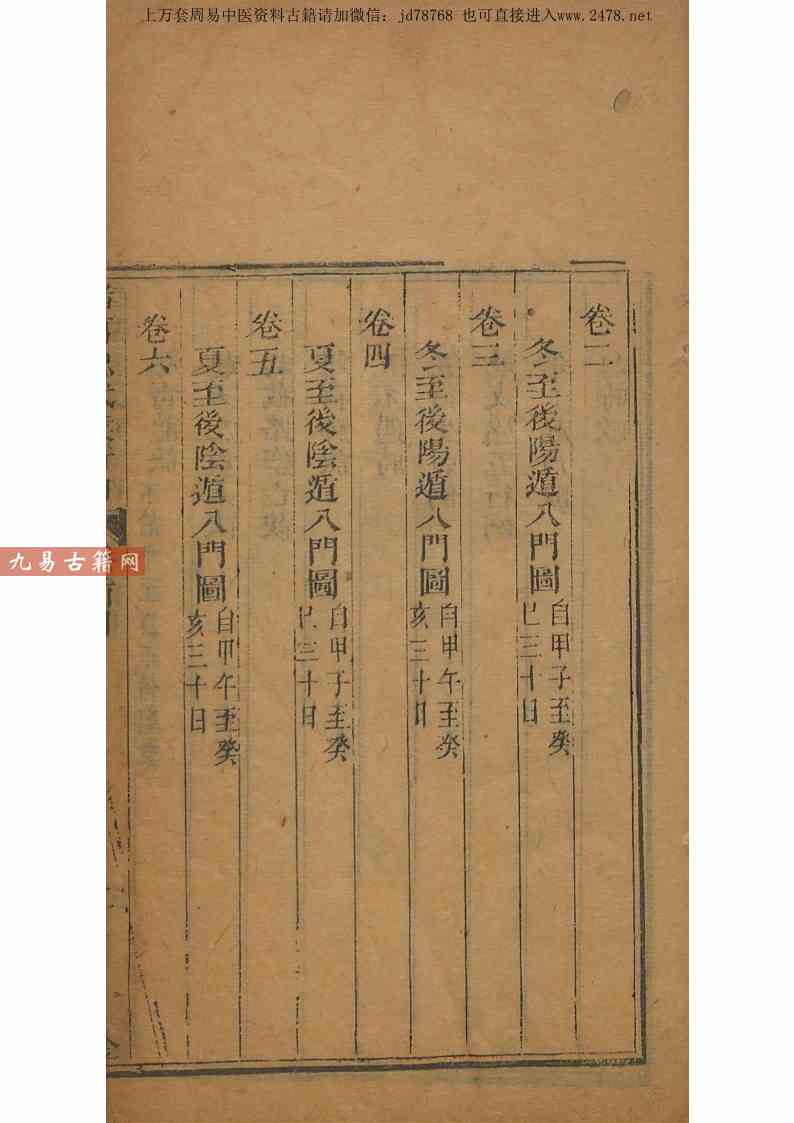 上万套周易中医资料古籍请加微信：jd78768 也可直接进入www.2478.net
卷二
冬至後陽遁八門圖自甲子至癸巳三十日
卷三
冬至後陽遁八門圖自甲午至癸亥三十日
卷四
夏至後陰遁八門圖自甲子至癸巳三十日
卷五
夏至後陰遁八門圖自甲午至癸亥三十日
卷六
九易古籍网